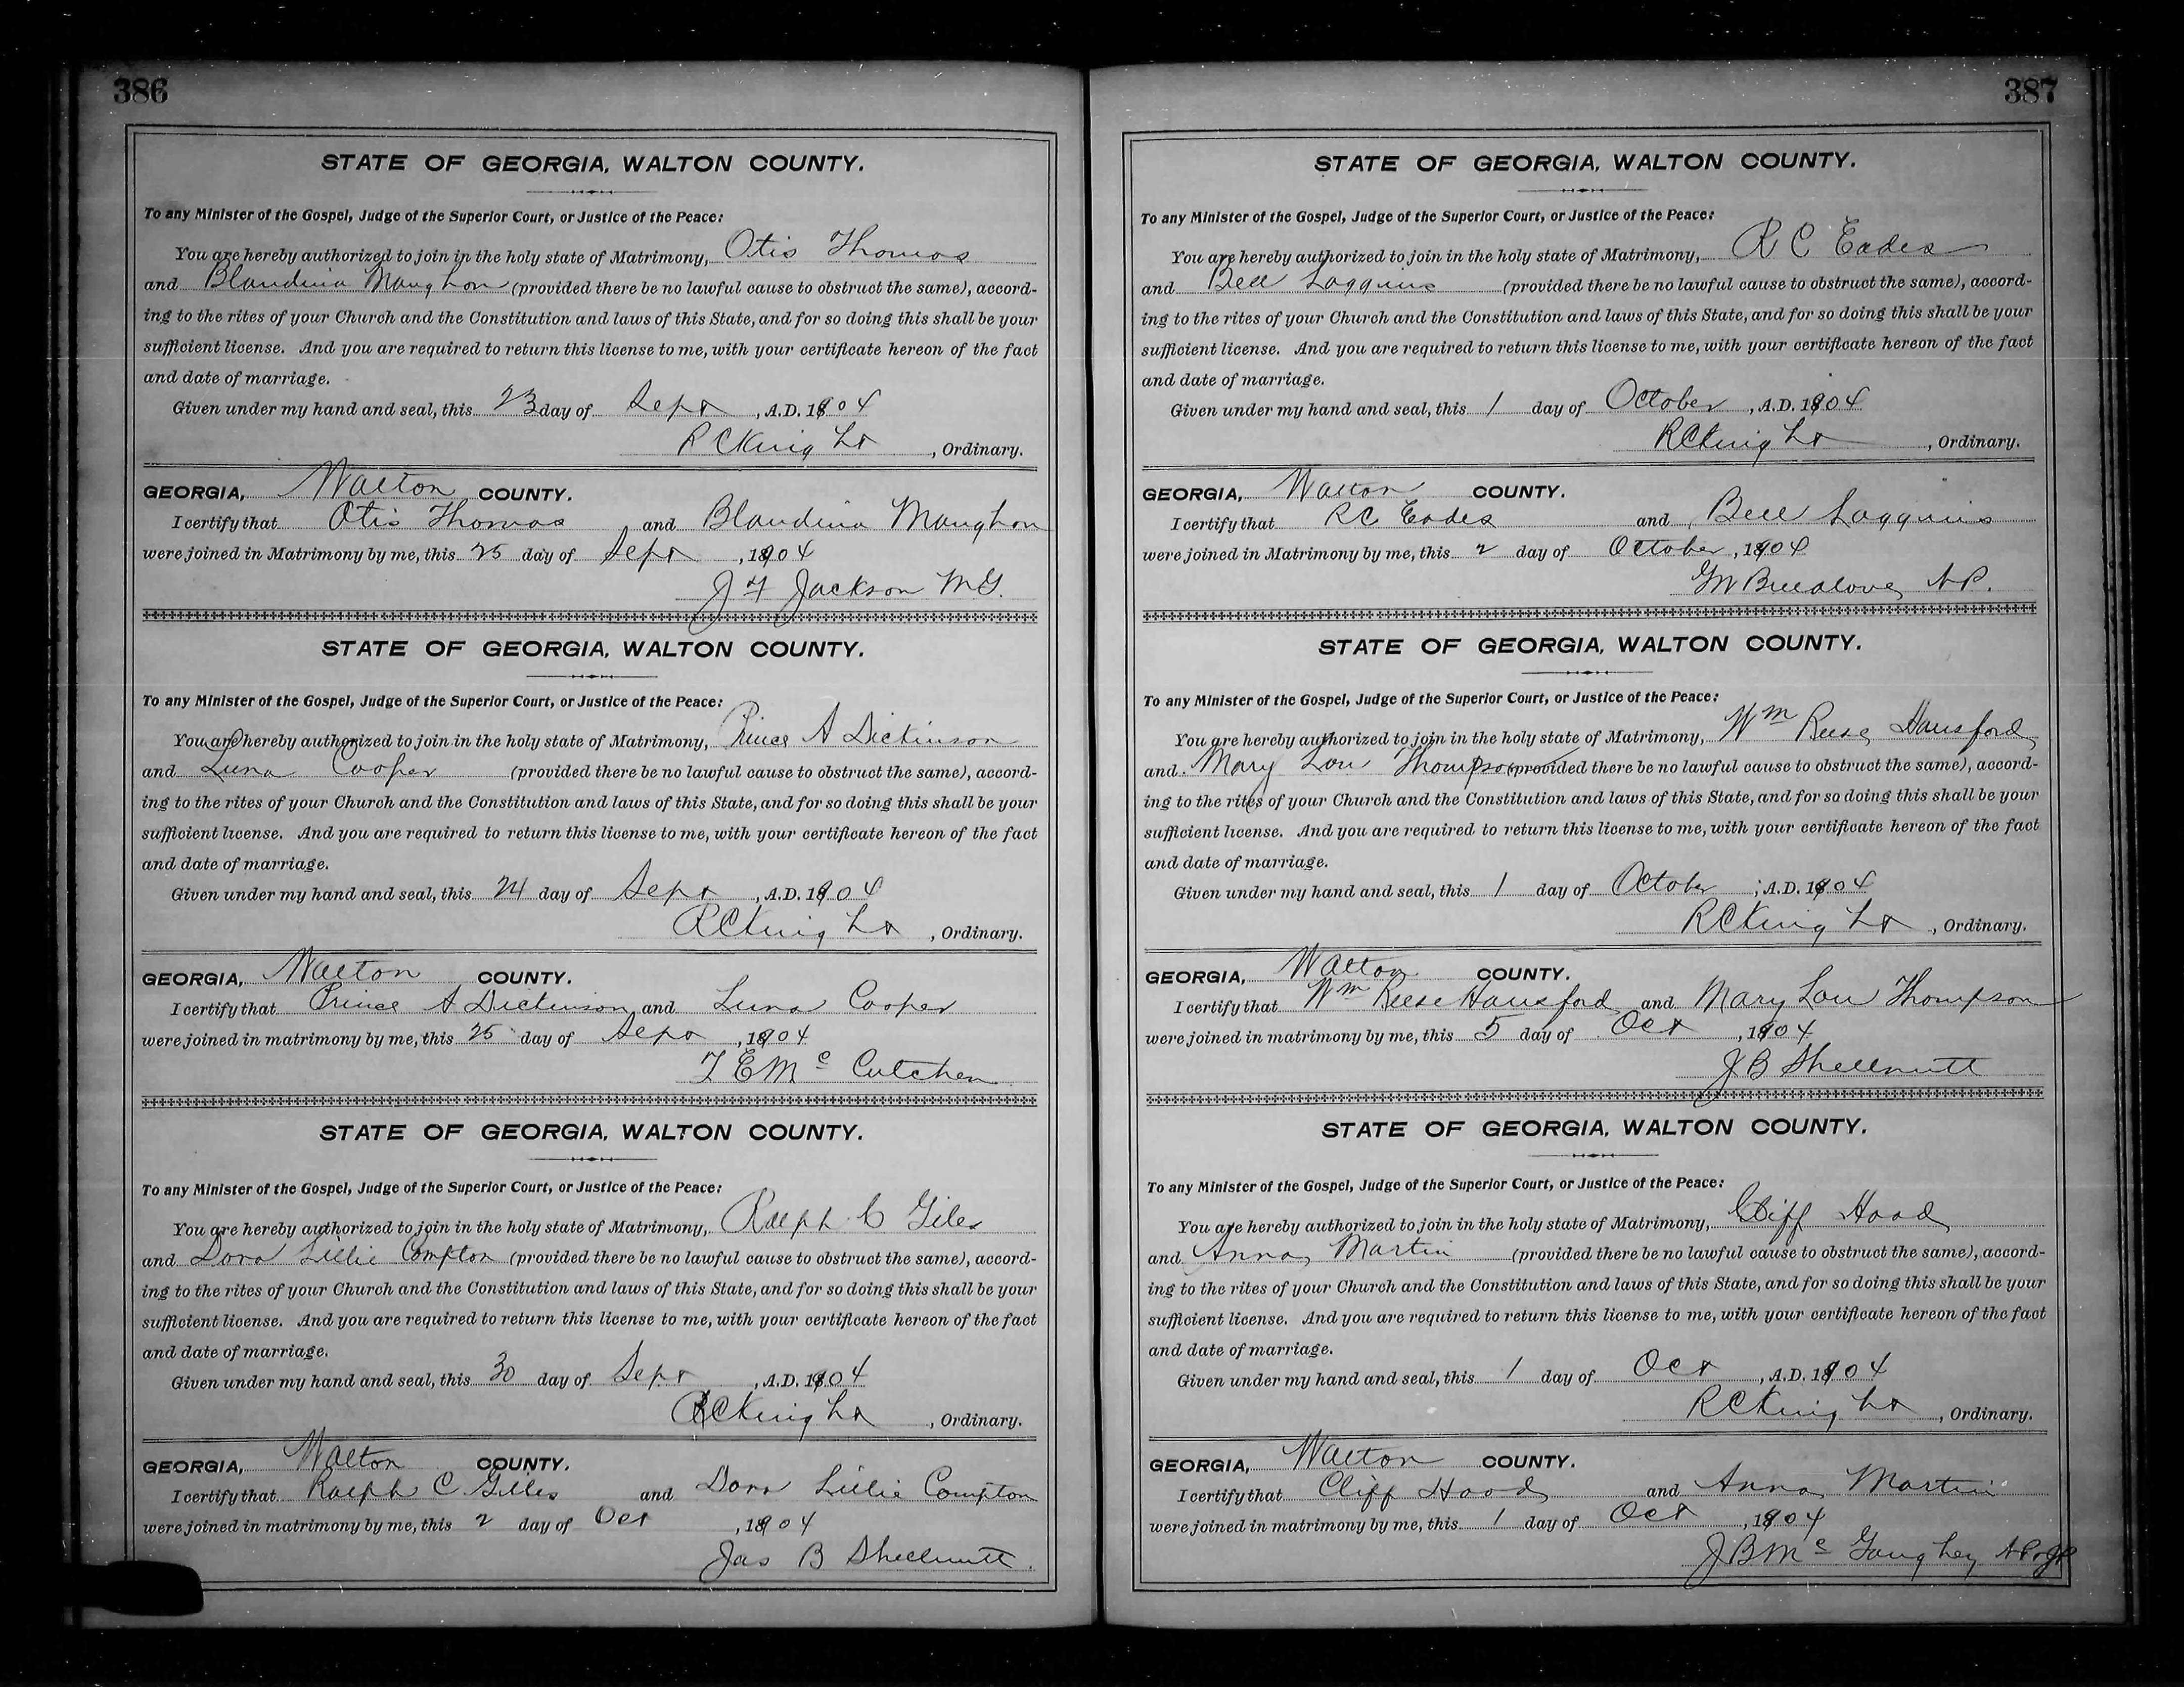 386
STATE OF GEORGIA, WALTON COUNTY.
To any Minister of the Gospel, Judge of the Superior Court, or Justice of the Peace:
You are hereby authorized to join in the holy state of Matrimony, Otis Thomas
and Blandina Maughon (provided there be no lawful cause to obstruct the same), accord-
ing to the rites of your Church and the Constitution and laws of this State, and for so doing this shall be your
sufficient license. And you are required to return this license to me, with your certificate hereon of the fact
and date of marriage.
Given under my hand and seal, this 23 day of Sept, A.D. 1904
R C Knight, Ordinary.
GEORGIA, Walton COUNTY.
I certify that Otis Thomas and Blandina Maughon
were joined in Matrimony by me, this 25 day of Sept, 1904
J F Jackson M.G.
STATE OF GEORGIA, WALTON COUNTY.
To any Minister of the Gospel, Judge of the Superior Court, or Justice of the Peace:
You are hereby authorized to join in the holy state of Matrimony, Prince A Dickinson
and Luna Cooper (provided there be no lawful cause to obstruct the same), accord-
ing to the rites of your Church and the Constitution and laws of this State, and for so doing this shall be your
sufficient license. And you are required to return this license to me, with your certificate hereon of the fact
and date of marriage.
Given under my hand and seal, this 24 day of Sept, A.D. 1904
R C Knight, Ordinary.
GEORGIA, Walton COUNTY.
I certify that Prince A Dickinson and Luna Cooper
were joined in matrimony by me, this 25 day of Sept, 1904
T E Mc Cutchen
STATE OF GEORGIA, WALTON COUNTY.
To any Minister of the Gospel, Judge of the Superior Court, or Justice of the Peace:
You are hereby authorized to join in the holy state of Matrimony, Ralph C Giles
and Dora Lillie Compton (provided there be no lawful cause to obstruct the same), accord-
ing to the rites of your Church and the Constitution and laws of this State, and for so doing this shall be your
sufficient license. And you are required to return this license to me, with your certificate hereon of the fact
and date of marriage.
Given under my hand and seal, this 30 day of Sept, A.D. 1904
R C Knight, Ordinary.
GEORGIA, Walton COUNTY.
I certify that Ralph C Gilles and Dora Lillie Compton
were joined in matrimony by me, this 2 day of Oct, 1904
Jas B Shellnutt.
387
STATE OF GEORGIA, WALTON COUNTY.
To any Minister of the Gospel, Judge of the Superior Court, or Justice of the Peace:
You are hereby authorized to join in the holy state of Matrimony, R C Eades
and Bell Loggins (provided there be no lawful cause to obstruct the same), accord-
ing to the rites of your Church and the Constitution and laws of this State, and for so doing this shall be your
sufficient license. And you are required to return this license to me, with your certificate hereon of the fact
and date of marriage.
Given under my hand and seal, this 1 day of October, A.D. 1904
R C Knight, Ordinary.
GEORGIA, Walton COUNTY.
I certify that R C Eades and Bell Loggins
were joined in Matrimony by me, this 2 day of October, 1904
G M Breedlove N.P.
STATE OF GEORGIA, WALTON COUNTY.
To any Minister of the Gospel, Judge of the Superior Court, or Justice of the Peace:
You are hereby authorized to join in the holy state of Matrimony, Wm Reese Hansford
and Mary Lou Thompson (provided there be no lawful cause to obstruct the same), accord-
ing to the rites of your Church and the Constitution and laws of this State, and for so doing this shall be your
sufficient license. And you are required to return this license to me, with your certificate hereon of the fact
and date of marriage.
Given under my hand and seal, this 1 day of October, A.D. 1904
R C Knight, Ordinary.
GEORGIA, Walton COUNTY.
I certify that Wm Reese Hansford and Mary Lou Thompson
were joined in matrimony by me, this 5 day of Oct, 1904
J B Shellnutt
STATE OF GEORGIA, WALTON COUNTY.
To any Minister of the Gospel, Judge of the Superior Court, or Justice of the Peace:
You are hereby authorized to join in the holy state of Matrimony, Cliff Hood
and Anna Martin (provided there be no lawful cause to obstruct the same), accord-
ing to the rites of your Church and the Constitution and laws of this State, and for so doing this shall be your
sufficient license. And you are required to return this license to me, with your certificate hereon of the fact
and date of marriage.
Given under my hand and seal, this 1 day of Oct, A.D. 1904
R C Knight, Ordinary.
GEORGIA, Walton COUNTY.
I certify that Cliff Hood and Anna Martin
were joined in matrimony by me, this 1 day of Oct, 1904
J B Mc Gaughey